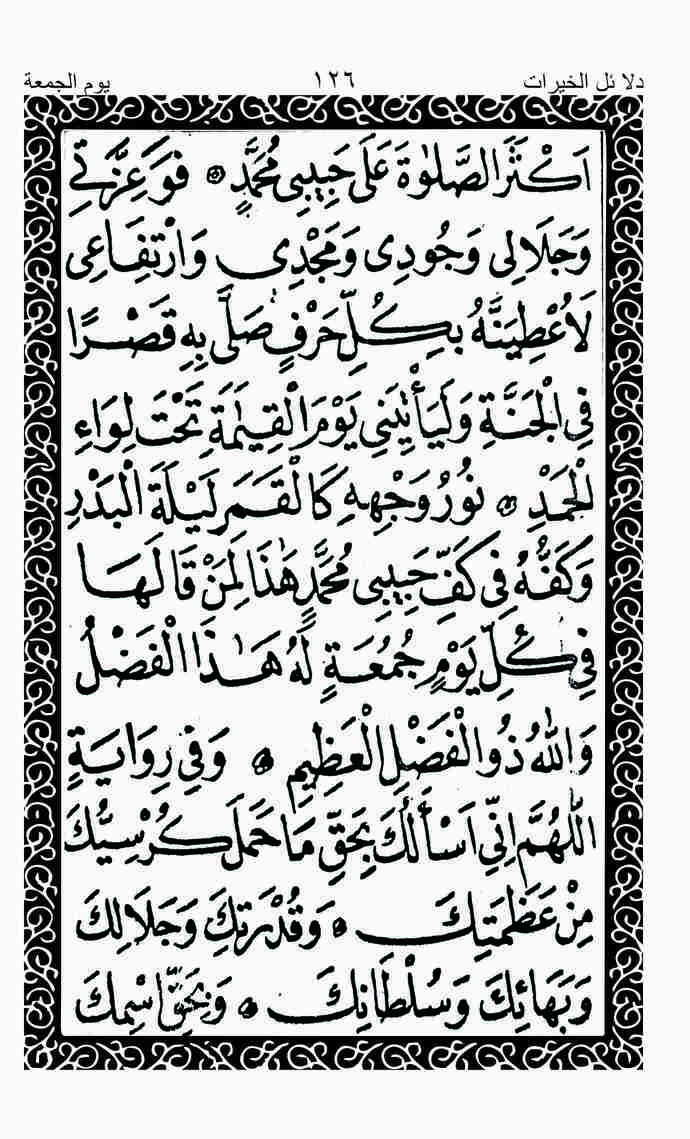 دلائل الخيرات ١٢٦ يوم الجمعة
اَكْثَرَ الصَّلٰوةَ عَلٰى حَبِيبِى مُحَمَّدٍ ۞ فَوَعِزَّتِى
وَجَلَالِى وَجُودِى وَمَجْدِى وَارْتِفَاعِى
لَاُعْطِيَنَّهُ بِكُلِّ حَرْفٍ صَلّٰى بِهِ قَصْرًا
فِى الْجَنَّةِ وَلَيَأْتِيَنِى يَوْمَ الْقِيٰمَةِ تَحْتَ لِوَاءِ
الْحَمْدِ ۞ نُورُ وَجْهِهِ كَالْقَمَرِ لَيْلَةَ الْبَدْرِ
وَكَفُّهُ فِى كَفِّ حَبِيبِى مُحَمَّدٍ هٰذَا لِمَنْ قَالَهَا
فِى كُلِّ يَوْمِ جُمُعَةٍ لَهُ هٰذَا الْفَضْلُ
وَاللّٰهُ ذُو الْفَضْلِ الْعَظِيمِ ۞ وَفِى رِوَايَةٍ
اَللّٰهُمَّ اِنِّى اَسْأَلُكَ بِحَقِّ مَا حَمَلَ كُرْسِيُّكَ
مِنْ عَظَمَتِكَ ۞ وَقُدْرَتِكَ وَجَلَالِكَ
وَبَهَائِكَ وَسُلْطَانِكَ ۞ وَبِحَقِّ اسْمِكَ